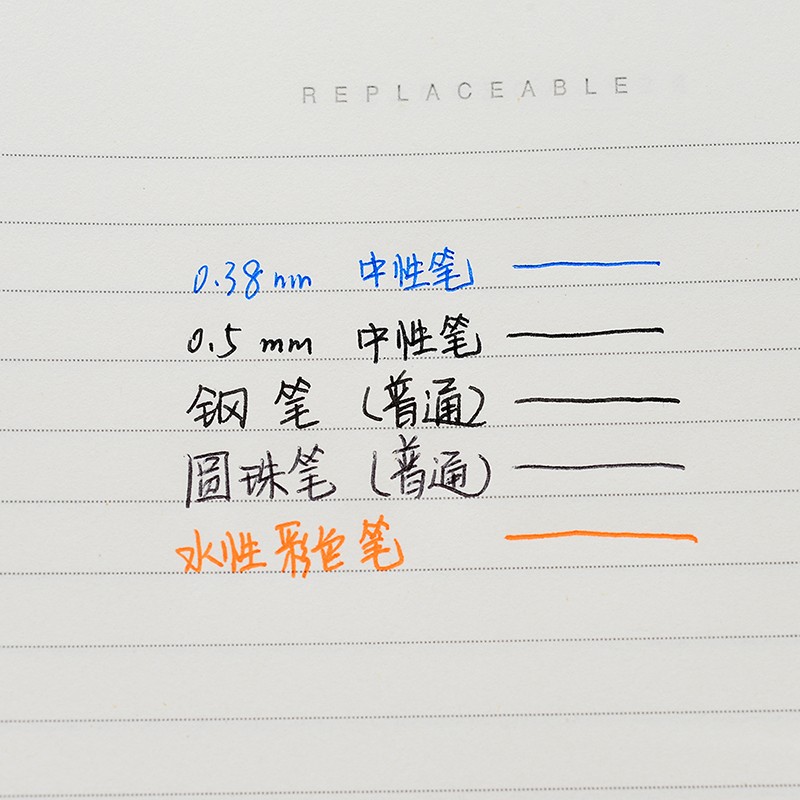 REPLACEABLE
0.38mm 中性笔
0.5mm 中性笔
钢笔(普通)
圆珠笔(普通)
水性彩色笔